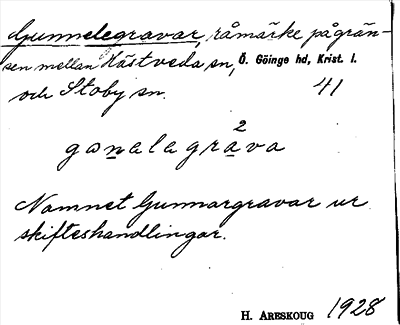 Gunnelegravar, råmärke på grän-
sen mellan Hästveda sn, Ö. Göinge hd, Krist. l.
och Stoby sn. 41
2
gɷnəlagrava
Namnet Gunnargravar ur
skifteshandlingar.
H. Areskoug 1928